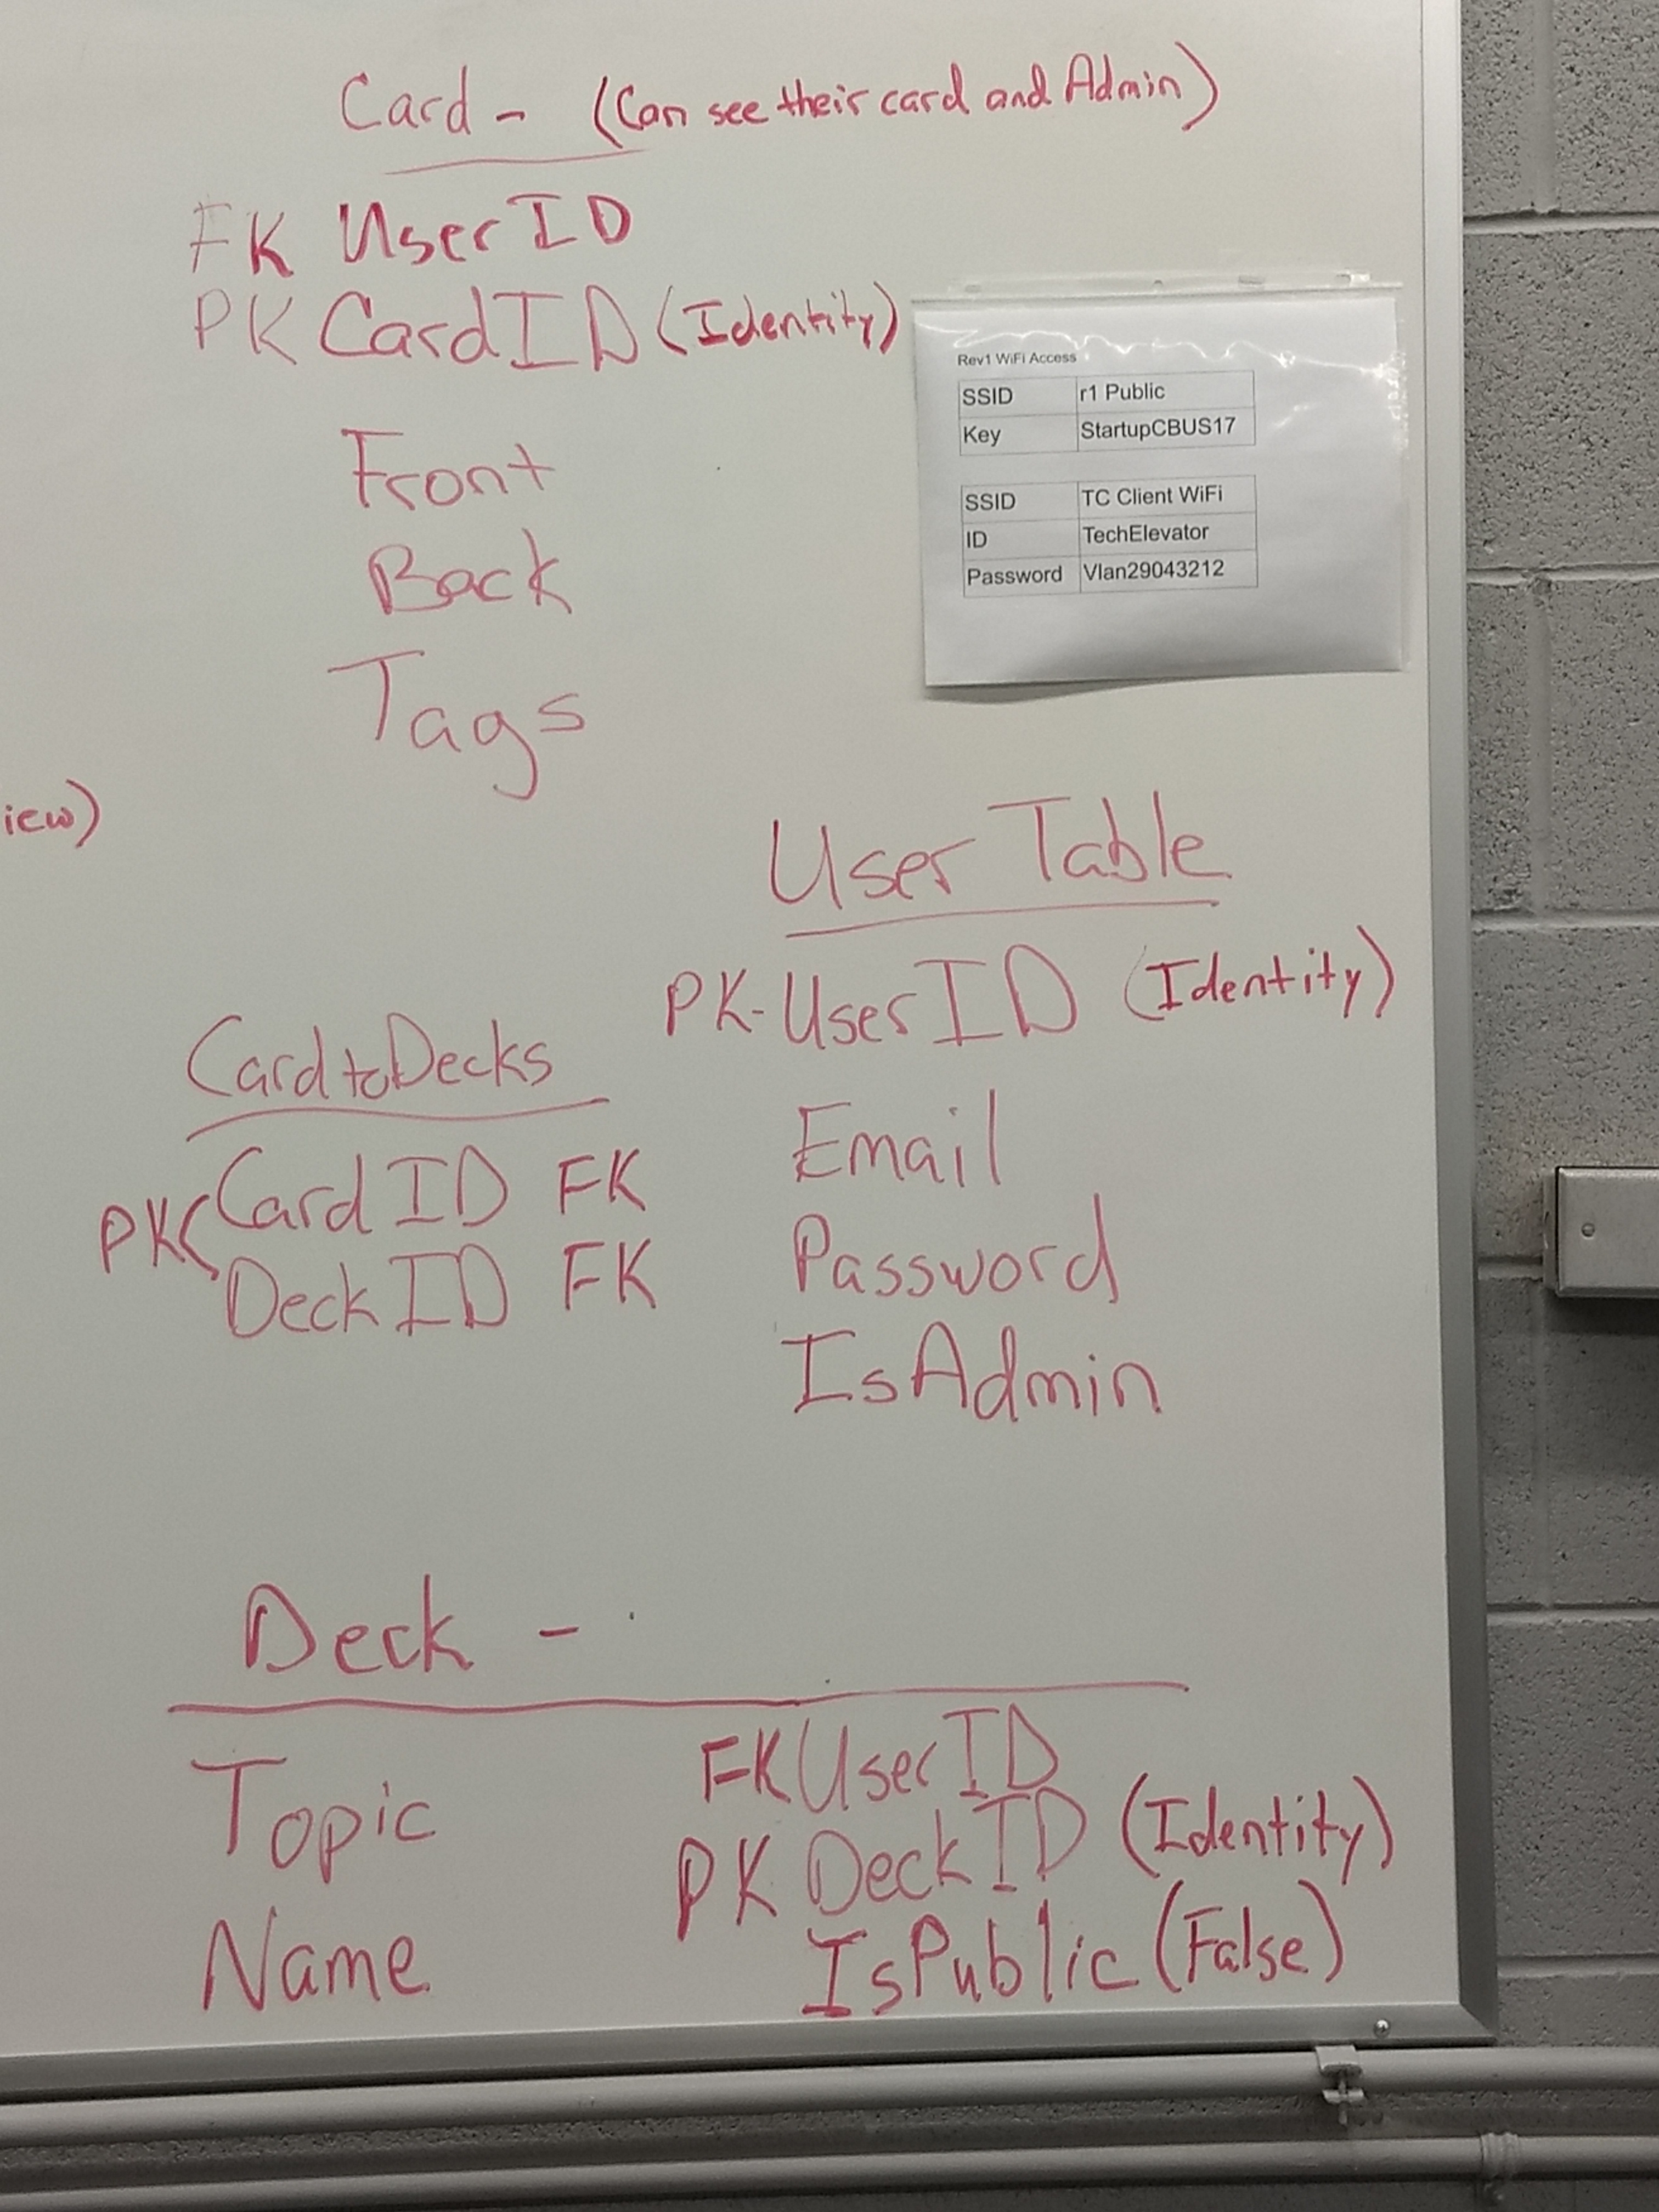 Card - (Can see their card and Admin)
FK UserID
PK CardID (Identity)
Front
Back
Tags
Rev1 WiFi Access
SSID r1 Public
Key StartupCBUS17
SSID TC Client WiFi
ID TechElevator
Password Vlan29043212
iew)
User Table
PK-UserID (Identity)
Email
Password
IsAdmin
CardtoDecks
PK CardID FK
DeckID FK
Deck -
Topic
Name
FK UserID
PK DeckID (Identity)
IsPublic (False)